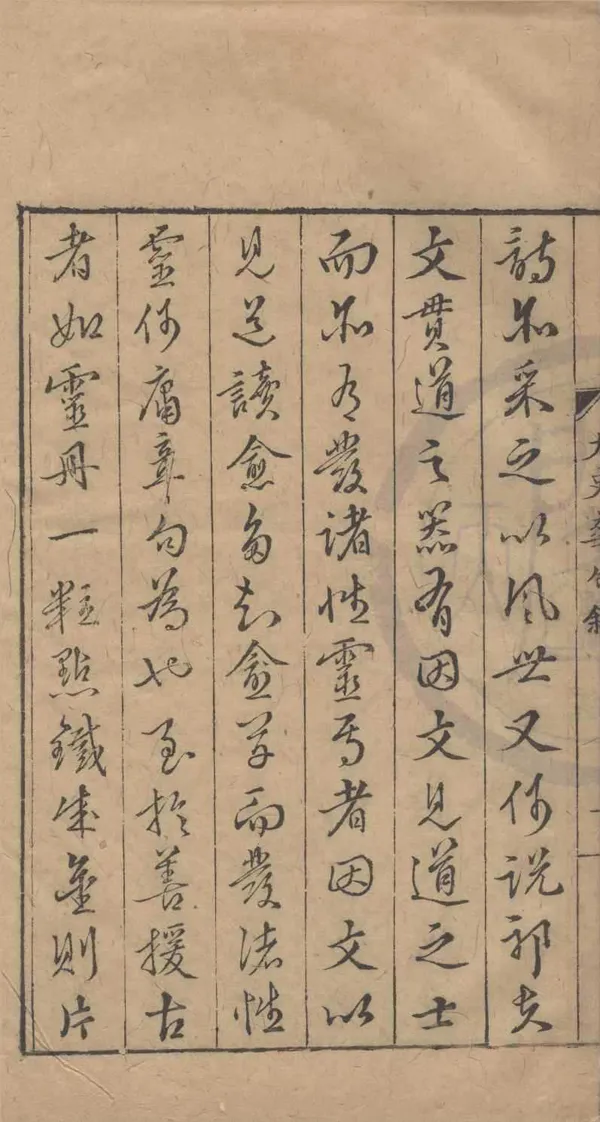 大史華句敘 一
詩亦采之以風世又何說邪夫
文貫道之器有因文見道之士
而亦有發諸性靈焉者因文以
見道讀愈多知愈而發諸性
靈何庸章句為也至於善援古
者如靈丹一粒點鐵成金則片